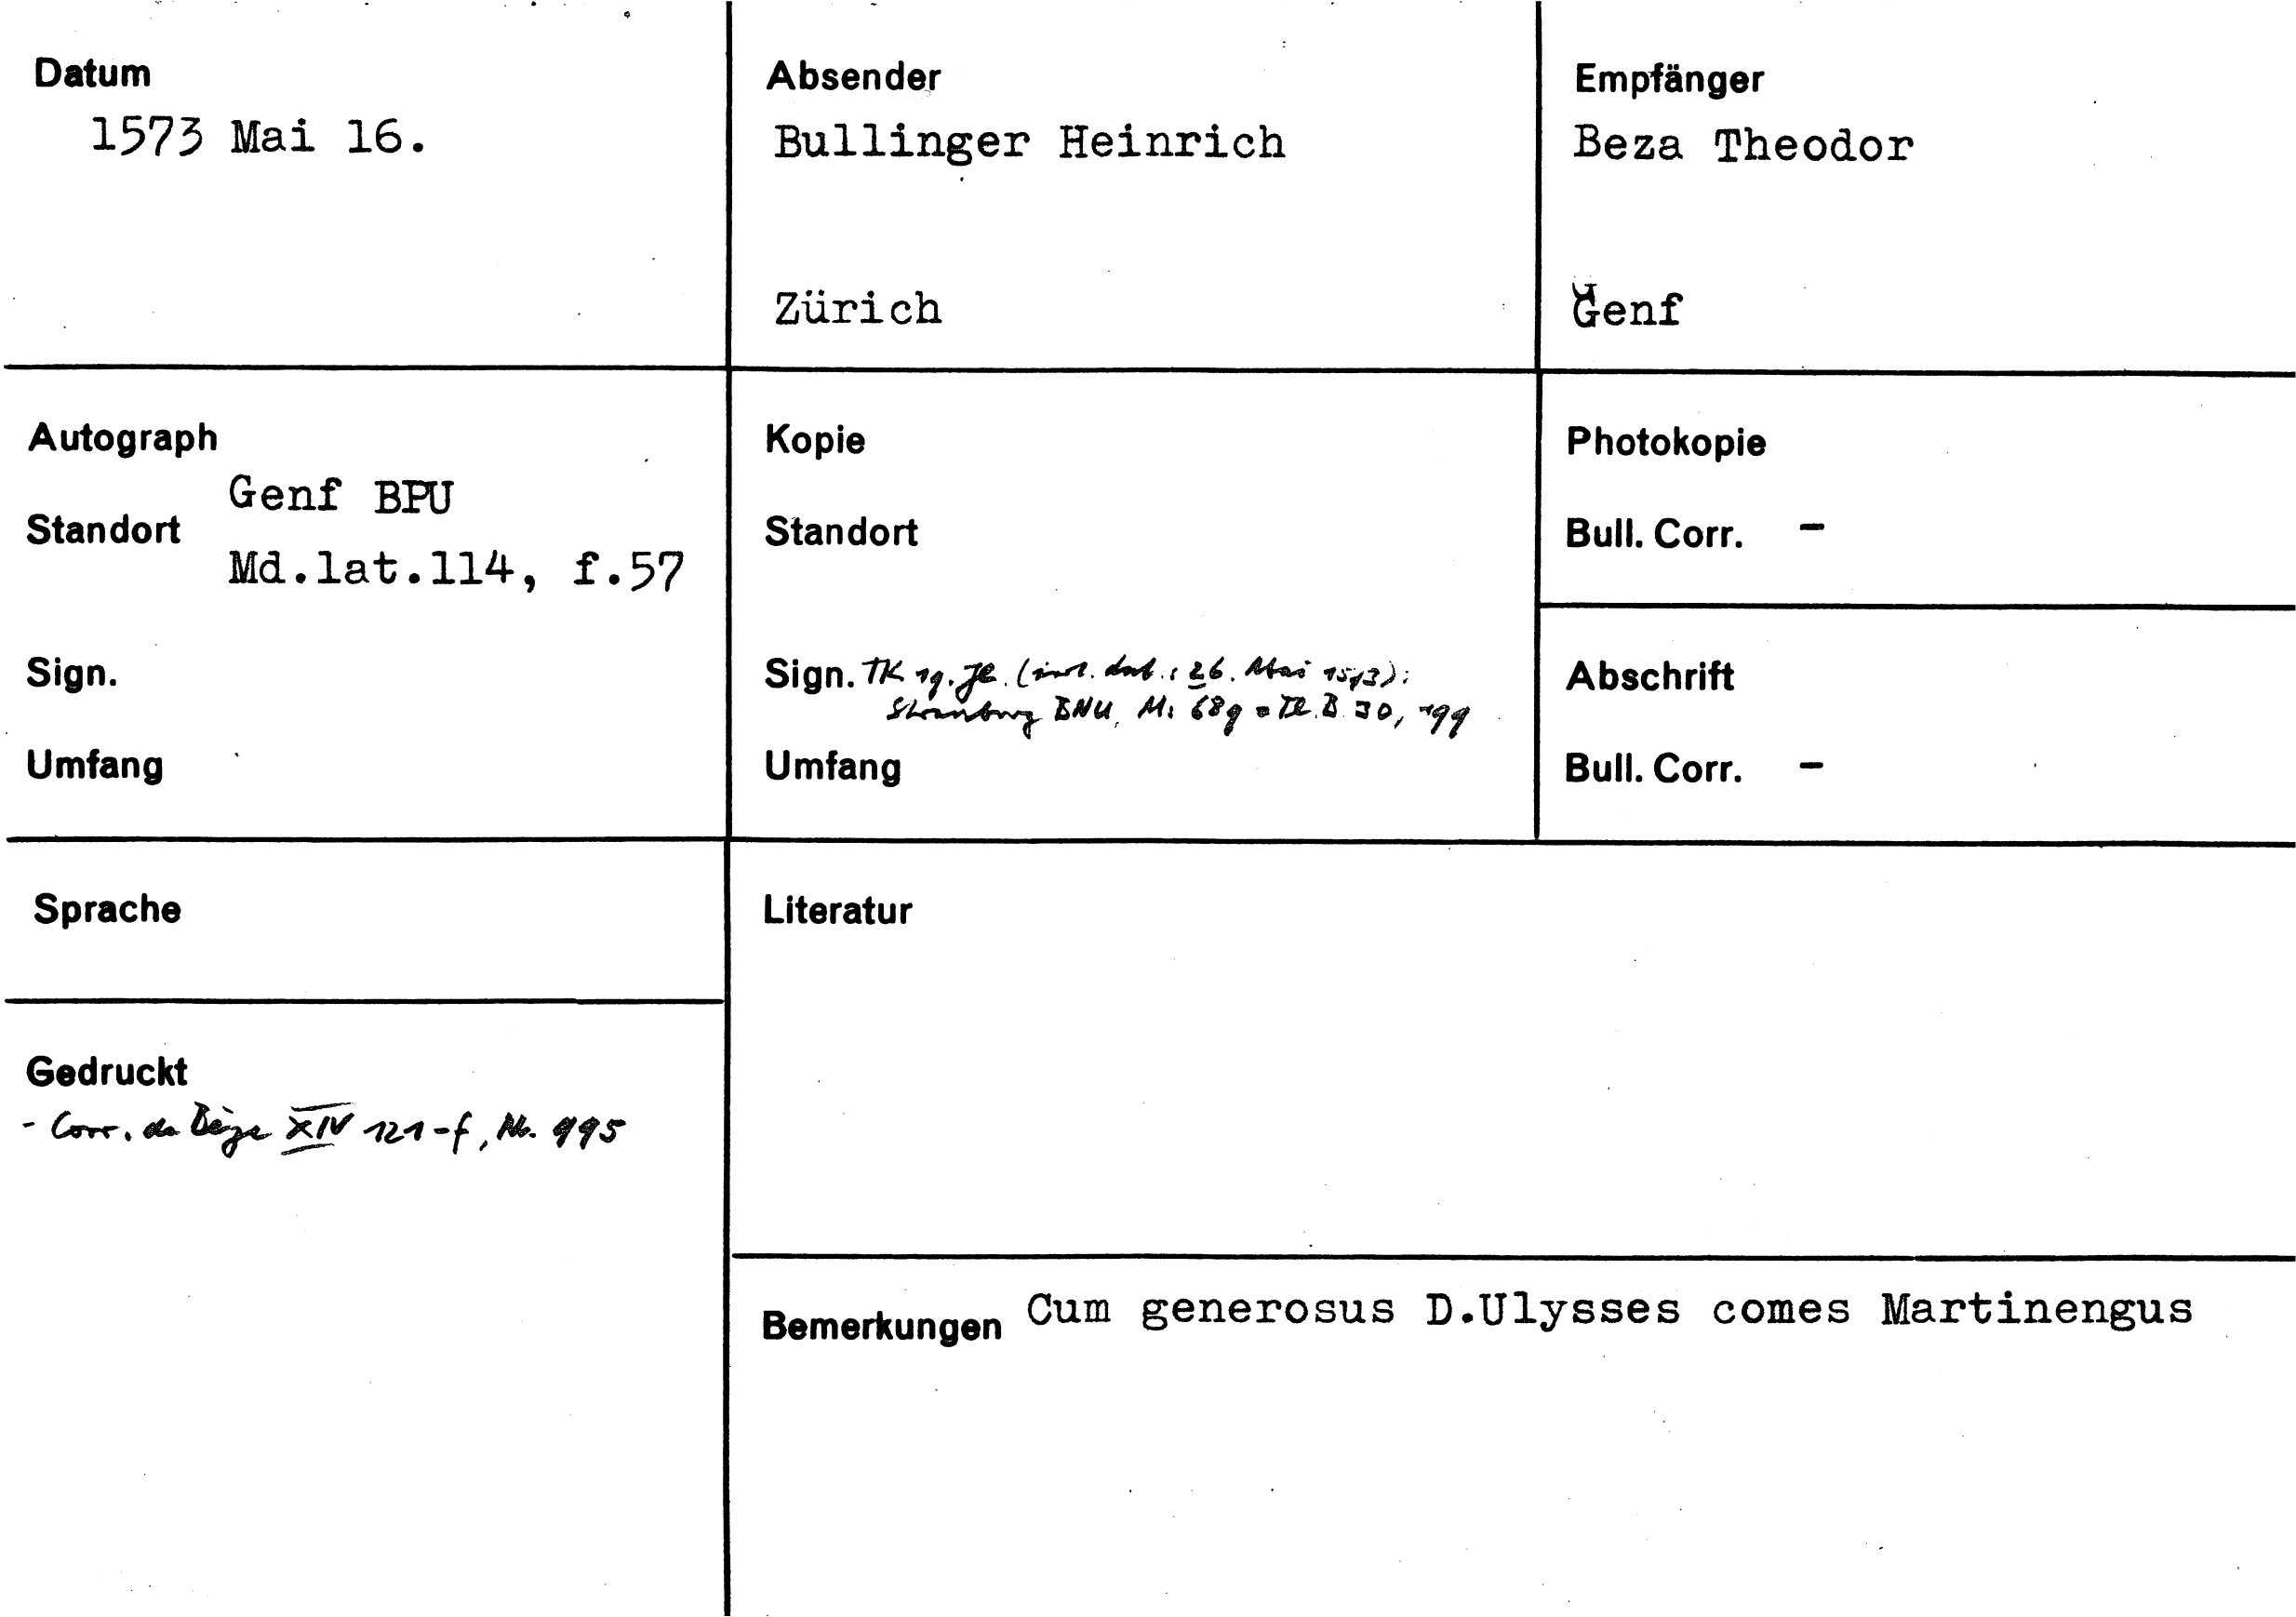 Datum
1573 Mai 16.
Absender
Bullinger Heinrich
Zürich
Empfänger
Beza Theodor
Genf
Autograph
Standort
Genf BPU
Md.lat.114, f.57
Sign.
Umfang
Kopie
Standort
Sign. TK 19. Jh. (irrt. dat.: 26. Mai 1573):
Strassburg BNU, Ms 689 = Th. B. 30, 199
Umfang
Photokopie
Bull. Corr. -
Abschrift
Bull. Corr. -
Sprache
Gedruckt
- Corr. de Bèze XIV 121-f, Nr. 995
Literatur
Bemerkungen Cum generosus D.Ulysses comes Martinengus